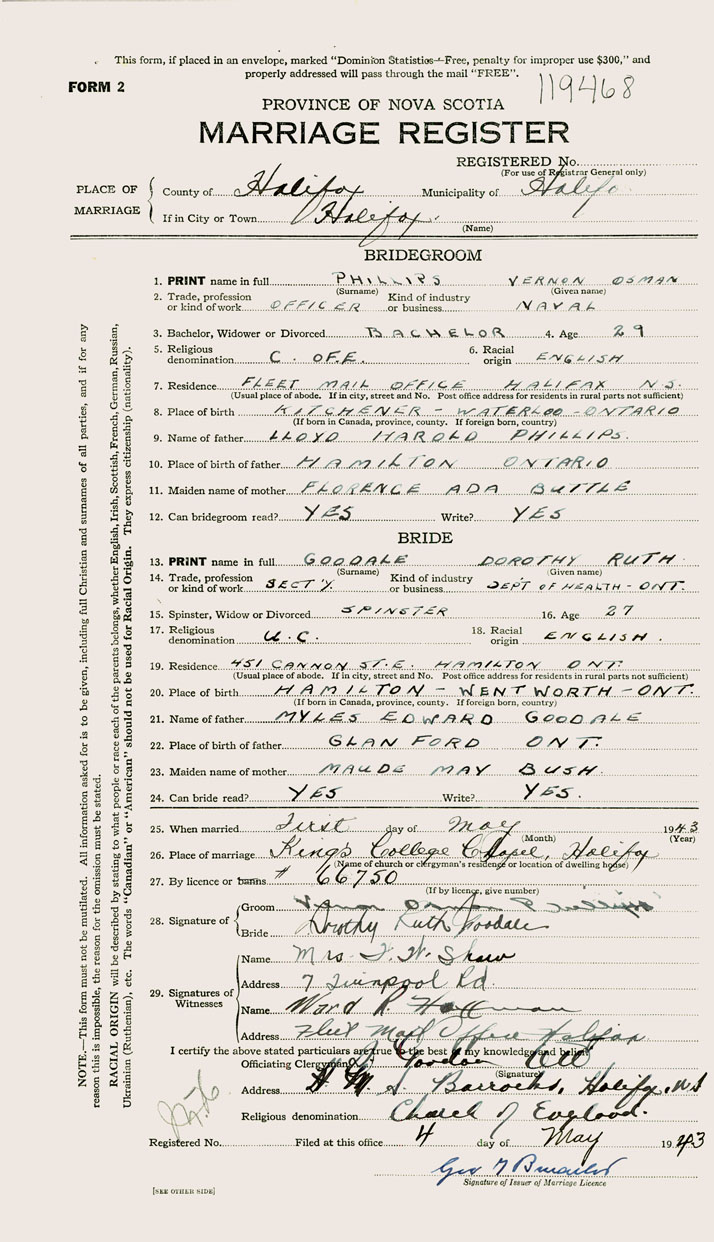 This form, if placed in an envelope, marked "Dominion Statistics—Free, penalty for improper use $300," and
properly addressed will pass through the mail "FREE".
FORM 2
119468
PROVINCE OF NOVA SCOTIA
MARRIAGE REGISTER
REGISTERED No.
(For use of Registrar General only)
PLACE OF MARRIAGE
County of Halifax Municipality of Halifa
If in City or Town Halifax.
(Name)
BRIDEGROOM
1. PRINT name in full PHILLIPS VERNON OSMAN
(Surname) (Given name)
2. Trade, profession or kind of work OFFICER Kind of industry or business NAVAL
3. Bachelor, Widower or Divorced BACHELOR 4. Age 29
5. Religious denomination C. OF.E. 6. Racial origin ENGLISH
7. Residence FLEET MAIL OFFICE HALIFAX N.S.
(Usual place of abode. If in city, street and No. Post office address for residents in rural parts not sufficient)
8. Place of birth KITCHENER - WATERLOO - ONTARIO
(If born in Canada, province, county. If foreign born, country)
9. Name of father LLOYD HAROLD PHILLIPS.
10. Place of birth of father HAMILTON ONTARIO
11. Maiden name of mother FLORENCE ADA BUTTLE
12. Can bridegroom read? YES Write? YES
BRIDE
13. PRINT name in full GOODALE DOROTHY RUTH
(Surname) (Given name)
14. Trade, profession or kind of work SECT'Y. Kind of industry or business DEPT OF HEALTH - ONT.
15. Spinster, Widow or Divorced SPINSTER 16. Age 27
17. Religious denomination U.C. 18. Racial origin ENGLISH.
19. Residence 451 CANNON ST. E. HAMILTON ONT.
(Usual place of abode. If in city, street and No. Post office address for residents in rural parts not sufficient)
20. Place of birth HAMILTON - WENTWORTH - ONT.
(If born in Canada, province, county. If foreign born, country)
21. Name of father MYLES EDWARD GOODALE
22. Place of birth of father GLANFORD ONT.
23. Maiden name of mother MAUDE MAY BUSH.
24. Can bride read? YES Write? YES.
25. When married First day of May 1943
(Month) (Year)
26. Place of marriage Kings College Chapel, Halifax
(Name of church or clergyman's residence or location of dwelling house)
27. By licence or banns # 66750
(If by licence, give number)
28. Signature of
Groom Vernon Osman Phillips
Bride Dorothy Ruth Goodale
29. Signatures of Witnesses
Name Mrs. F. W. Shaw
Address 7 Rd.
Name Ward R Hoffman
Address Fleet Mail Office Halifax
I certify the above stated particulars are true to the best of my knowledge and belief
Officiating Clergyman Gordon
(Signature)
Address H M S Barracks, Halifax, N S
Religious denomination Church of England.
Registered No. Filed at this office 4 day of May 1943
Geo
Signature of Issuer of Marriage Licence
[SEE OTHER SIDE]
NOTE.—This form must not be mutilated. All information asked for is to be given, including full Christian and surnames of all parties, and if for any
reason this is impossible, the reason for the omission must be stated.
RACIAL ORIGIN will be described by stating to what people or race each of the parents belongs, whether English, Irish, Scottish, French, German, Russian,
Ukrainian (Ruthenian), etc. The words "Canadian" or "American" should not be used for Racial Origin. They express citizenship (nationality).